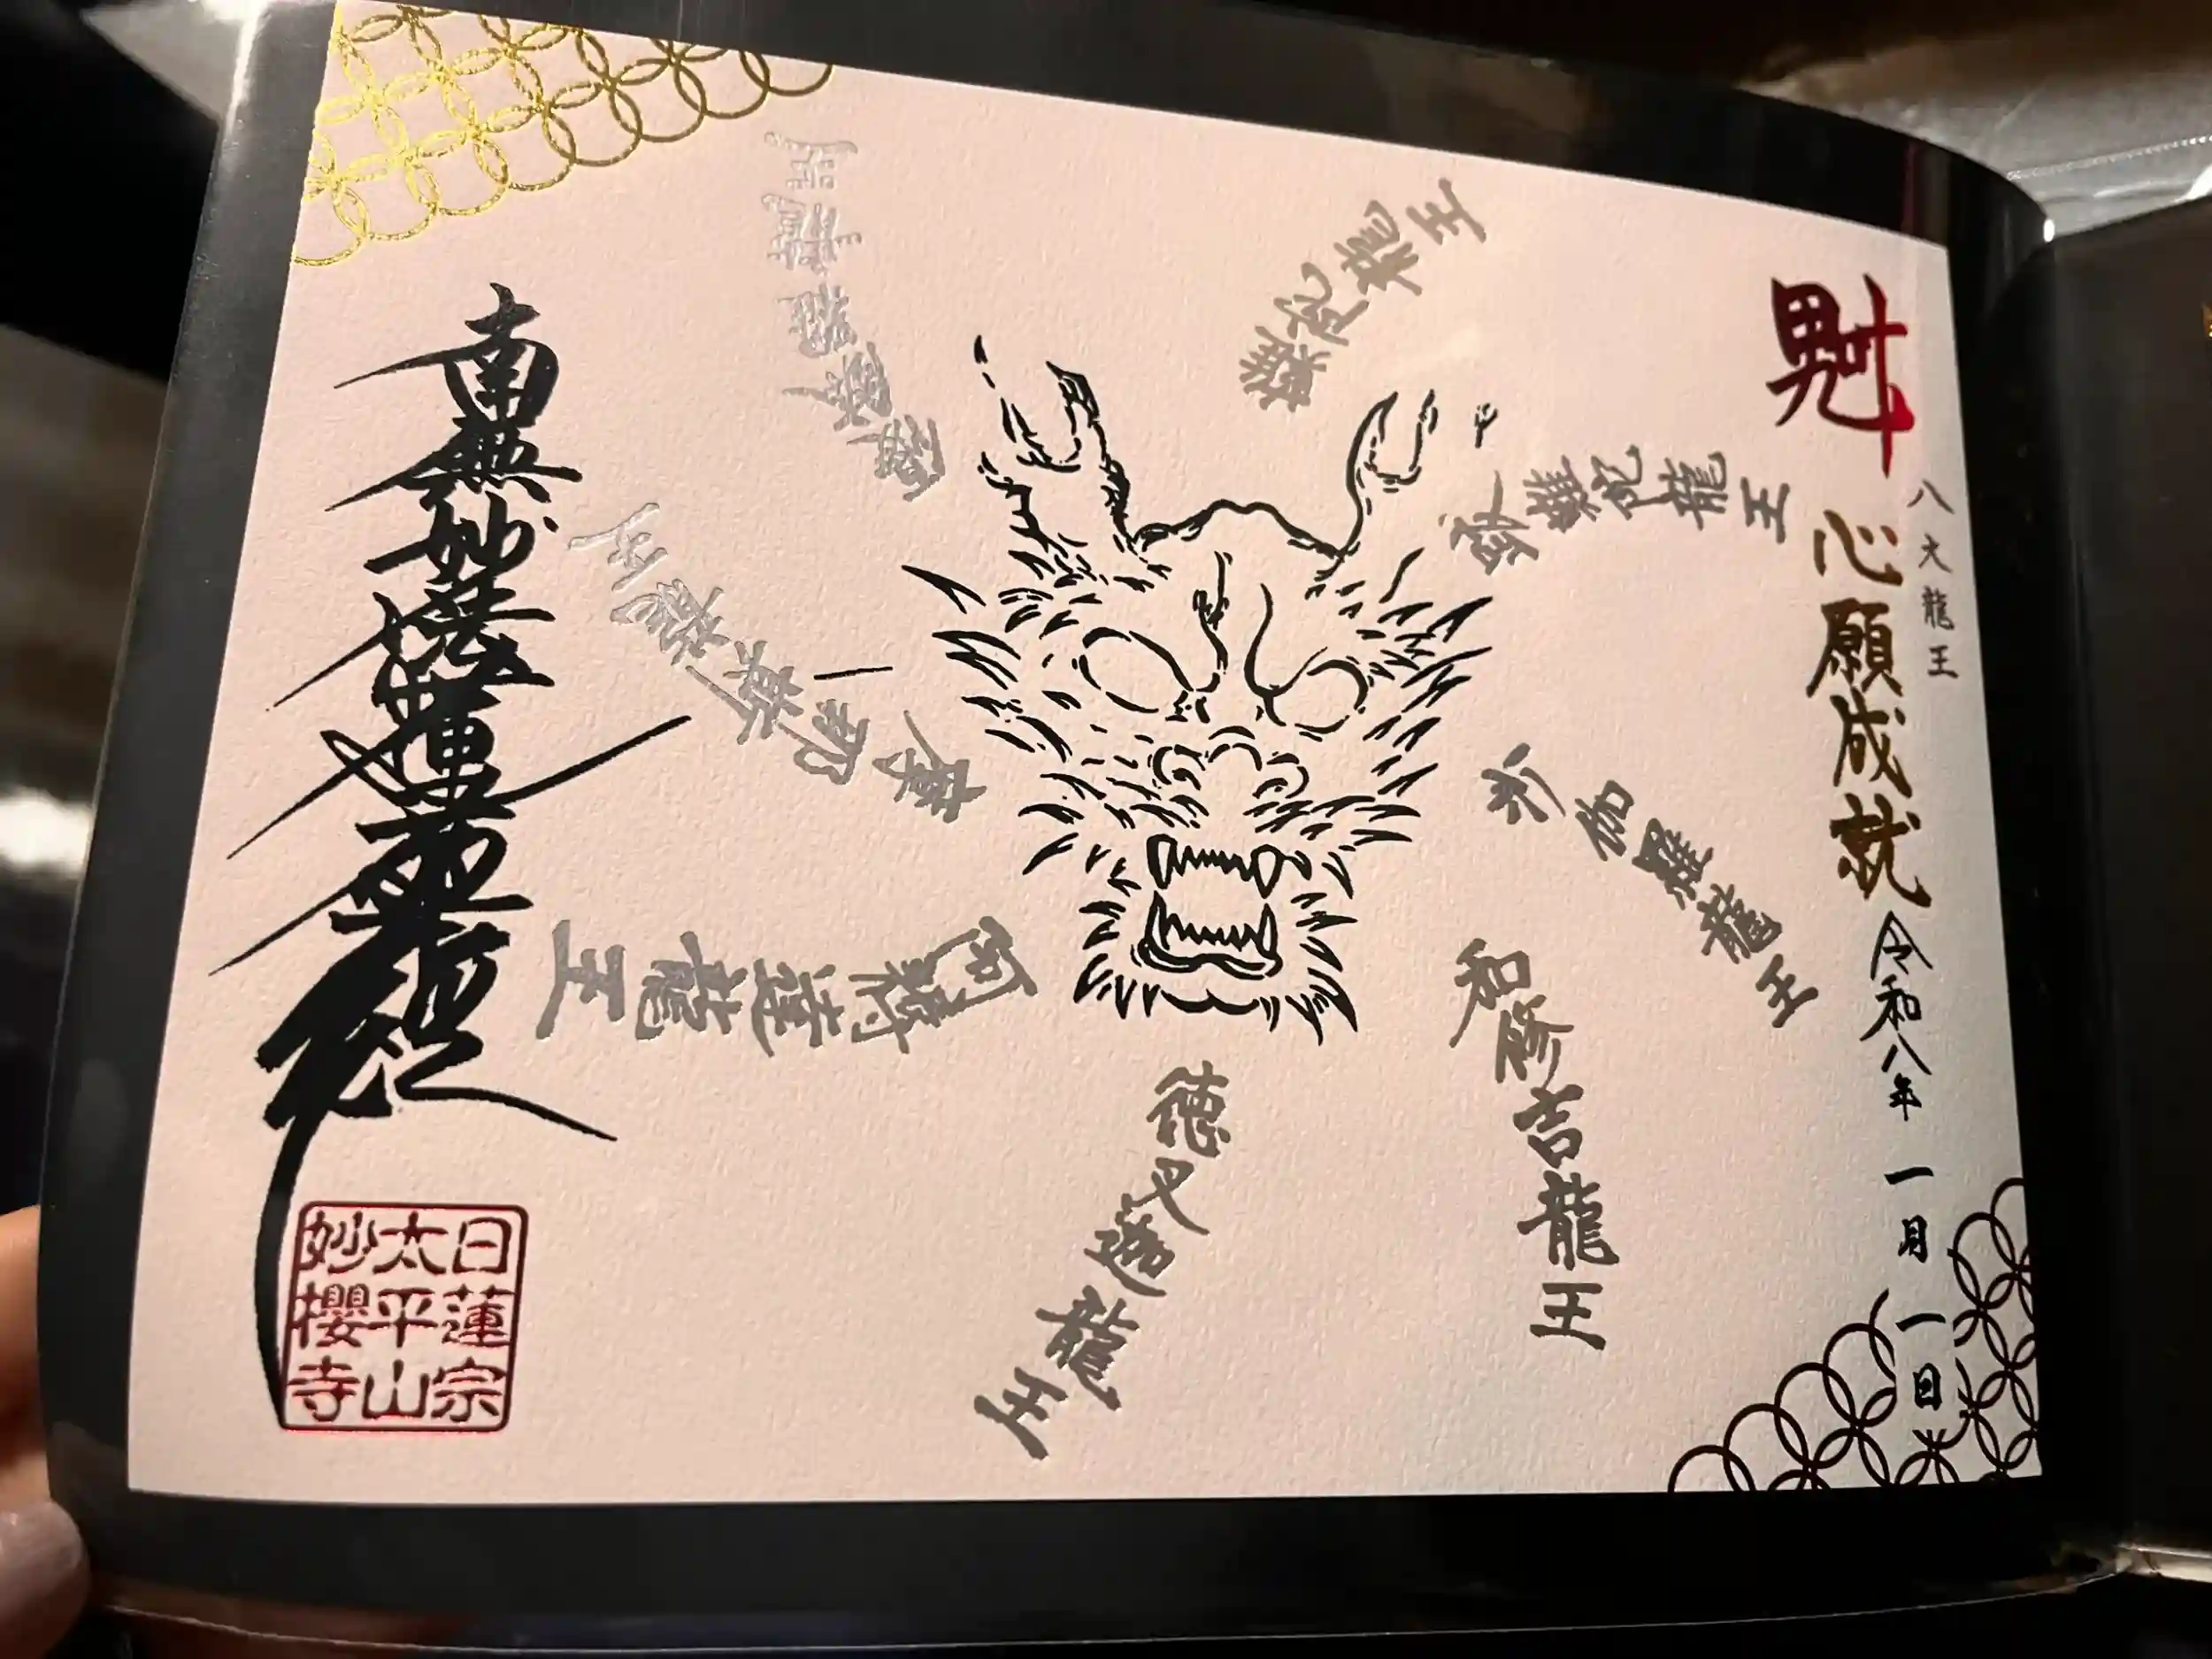 魁
八大龍王
心願成就
令和八年 一月 一日
難陀龍王
跋難陀龍王
沙伽羅龍王
和修吉龍王
徳叉迦龍王
阿耨達龍王
摩那斯龍王
優鉢羅龍王
南無妙法蓮華経
日蓮宗
太平山
妙櫻寺